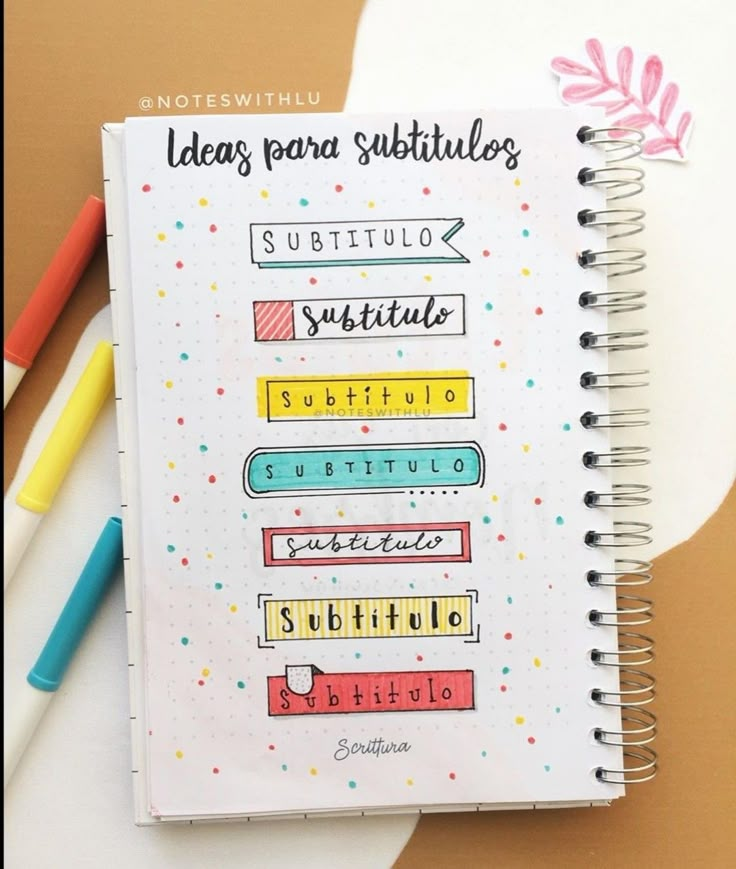 @NOTESWITHLU
Ideas para subtítulos
SUBTITULO
Subtítulo
Subtitulo
@NOTESWITHLU
SUBTITULO
subtitulo
Subtitulo
Subtitulo
Scrittura